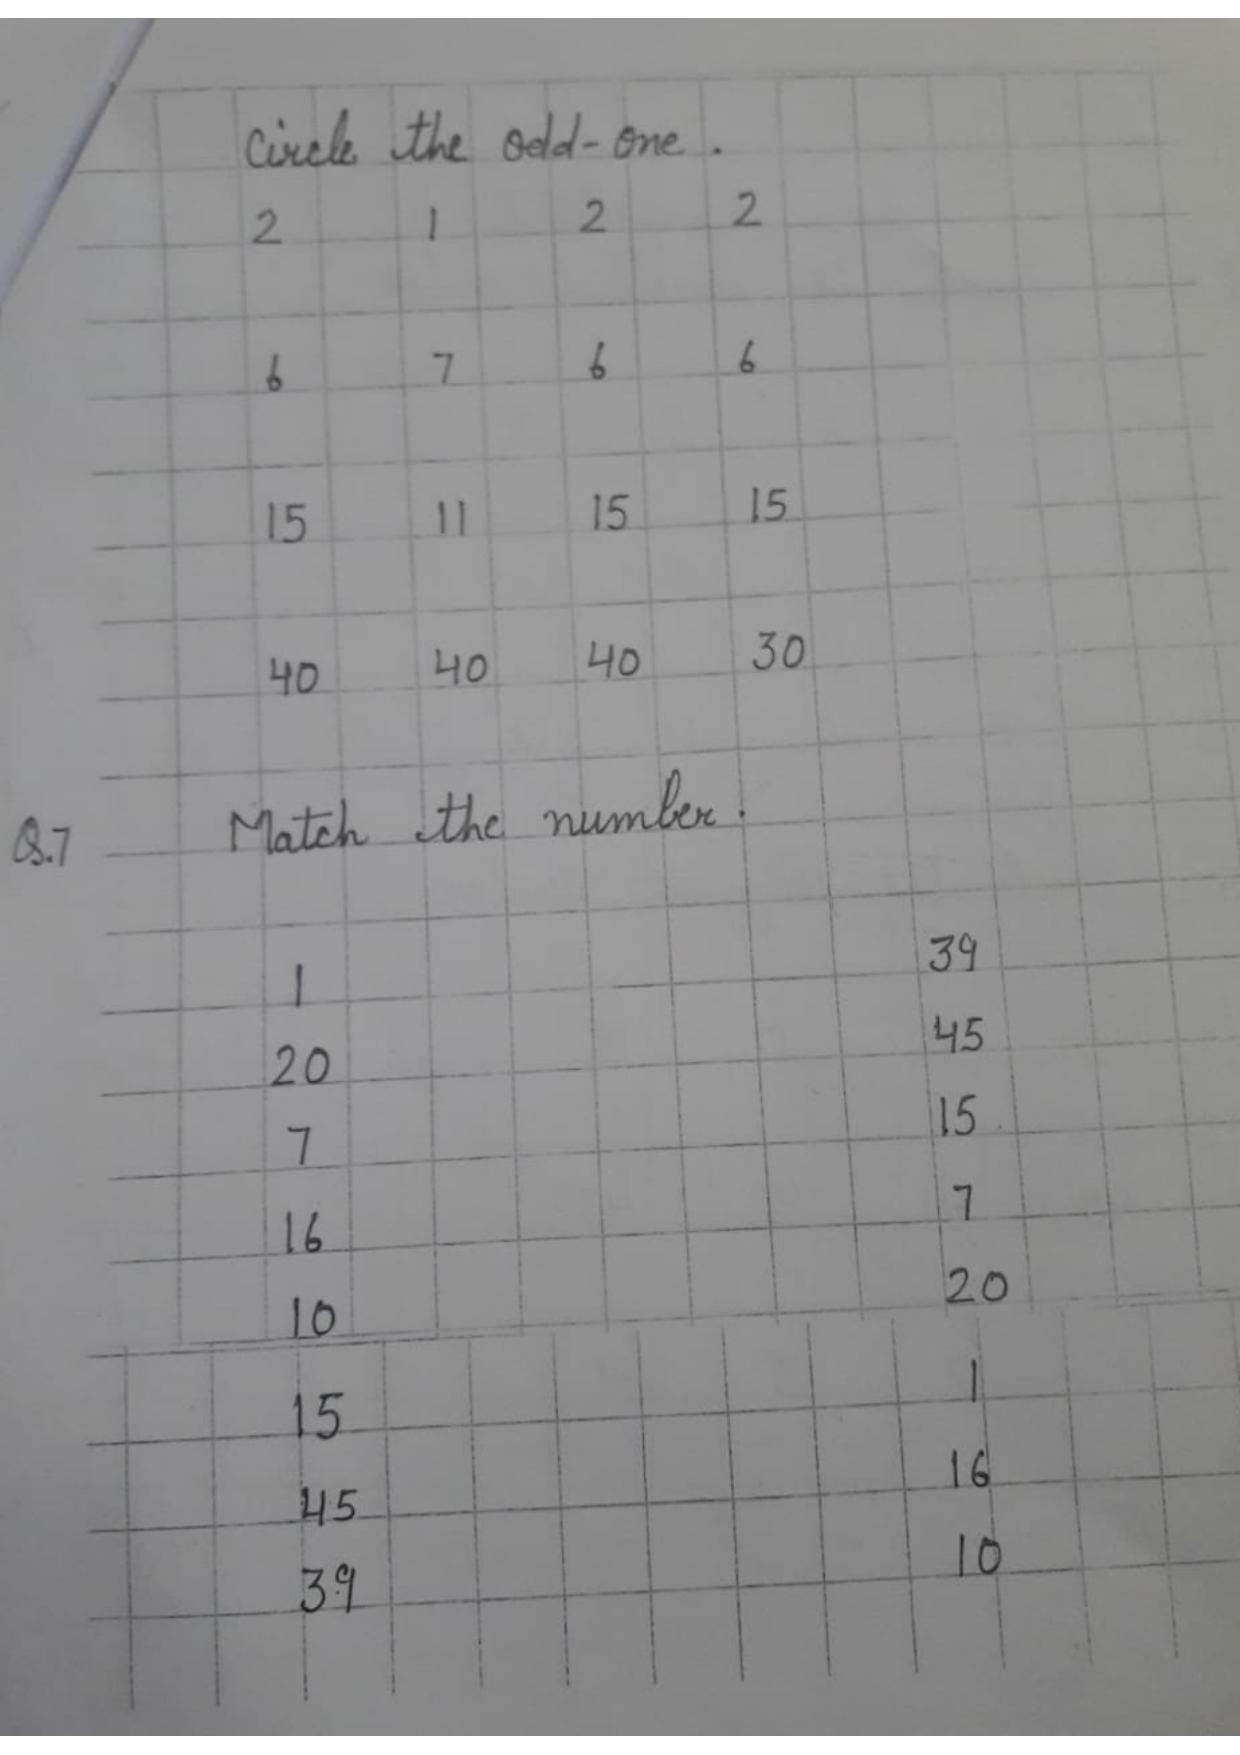 Circle the odd-one.
2 1 2 2
6 7 6 6
15 11 15 15
40 40 40 30
Q.7 Match the number.
1 39
20 45
7 15
16 7
10 20
15 1
45 16
39 10